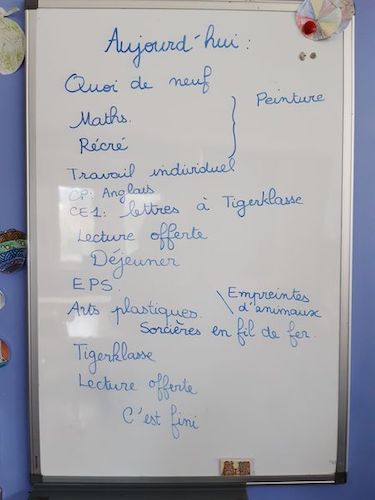 Aujourd'hui :
Quoi de neuf
Peinture
Maths.
Récré
Travail individuel
CP: Anglais
CE1: lettres à Tigerklasse
Lecture offerte
Déjeuner
EPS.
Arts plastiques.
Empreintes
d'animaux
Sorcières en fil de fer.
Tigerklasse
Lecture offerte
C'est fini